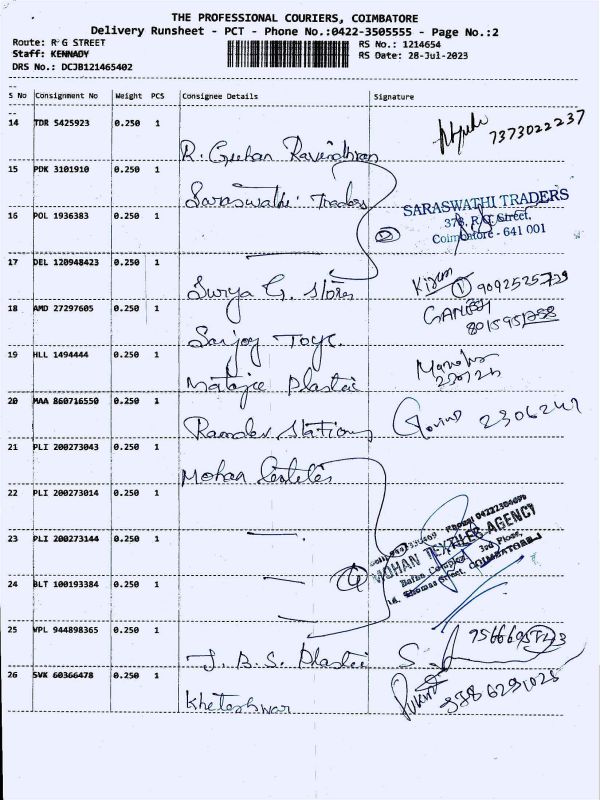 THE PROFESSIONAL COURIERS, COIMBATORE
Delivery Runsheet - PCT - Phone No.:0422-3505555 - Page No.:2
Route: R G STREET
RS No.: 1214654
Staff: KENNADY
RS Date: 28-Jul-2023
DRS No.: DCJB121465402
S No Consignment No Weight PCS Consignee Details Signature
14 TDR 5425923 0.250 1
7373022237
R. Guhan Ravindhran
15 PDK 3101910 0.250 1
Saraswathi Traders
SARASWATHI TRADERS
16 POL 1936383 0.250 1
378, R.G. Street,
② Coimbatore - 641 001
17 DEL 120948423 0.250 1
Surya G. Stores
① 9092525729
18 AMD 27297605 0.250 1
GANESH
Sanjoy Toys.
19 HLL 1494444 0.250 1
Matajee Plastic
20 MAA 860716550 0.250 1
Ramdev Stationy
Govind 2306247
21 PLI 200273043 0.250 1
Mohan Textiles
22 PLI 200273014 0.250 1
23 PLI 200273144 0.250 1
MOHAN TEXTILES AGENCY
3rd Floor,
④
24 BLT 100193384 0.250 1
Thomas Street, COIMBATORE-1
25 VPL 944898365 0.250 1
J. B. S. Plastic
26 SVK 60366478 0.250 1
Kheteshwar